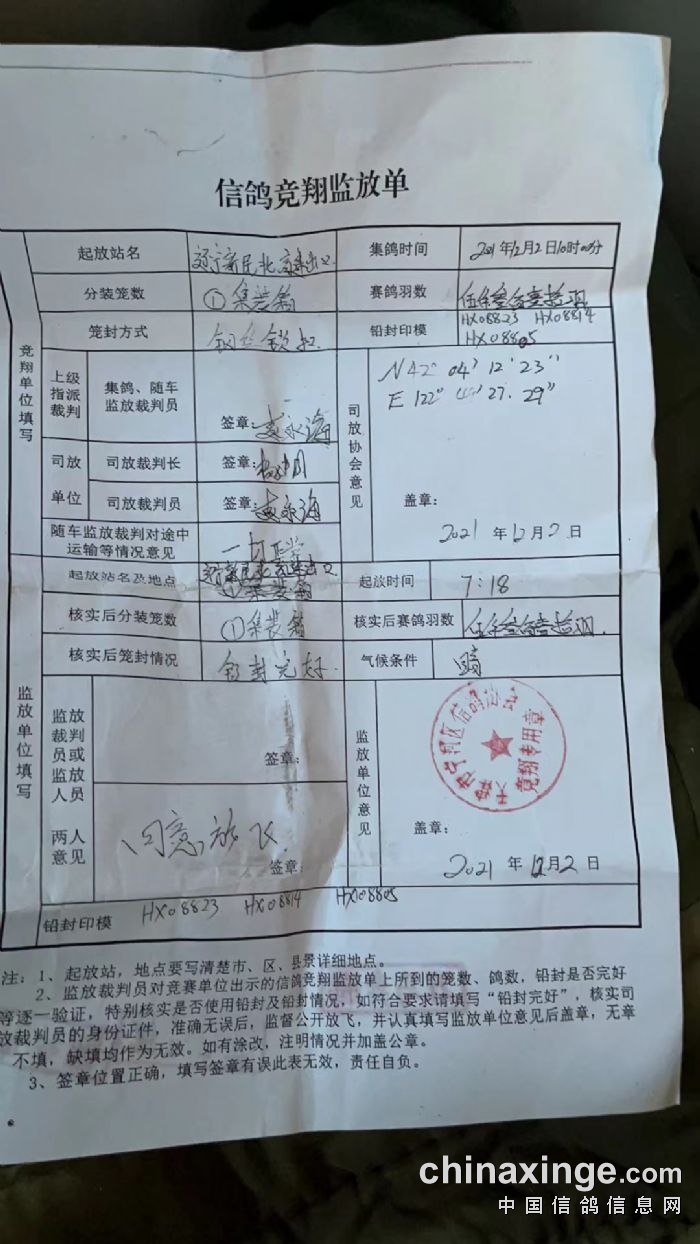 信鸽竞翔监放单
竞翔单位填写
起放站名 辽宁新民北高速出口
集鸽时间 2021年12月2日10时00分
分装笼数 ①集装箱
赛鸽羽数 伍仟叁佰壹拾羽
笼封方式 钢丝锁扣
铅封印模 HX08823 HX08814
HX08805
上级指派裁判
集鸽、随车监放裁判员
签章:
司放单位
司放裁判长 签章:
司放裁判员 签章:
随车监放裁判对途中
运输等情况意见 一切正常
司放协会意见
N42° 04' 12'23"
E 122° 27. 29"
盖章:
2021 年12月2日
监放单位填写
起放站名及地点 辽宁新民北高速出口
起放时间 7:18
核实后分装笼数 ①集装箱
核实后赛鸽羽数 伍仟叁佰壹拾羽.
核实后笼封情况 铅封完好.
气候条件 晴
监放裁判员或监放人员
签章:
两人意见
同意放飞
签章:
监放单位意见
天津市宁河区信鸽协会
竞翔专用章
盖章:
2021 年12月2日
铅封印模 HX08823 HX08814 HX08805
注:1、起放站,地点要写清楚市、区、县景详细地点。
2、监放裁判员对竞赛单位出示的信鸽竞翔监放单上所到的笼数、鸽数,铅封是否完好
等逐一验证,特别核实是否使用铅封及铅封情况,如符合要求请填写“铅封完好”,核实司
放裁判员的身份证件,准确无误后,监督公开放飞,并认真填写监放单位意见后盖章,无章
不填,缺填均作为无效。如有涂改,注明情况并加盖公章。
3、签章位置正确,填写签章有误此表无效,责任自负。
chinaxinge.com
中国信鸽信息网